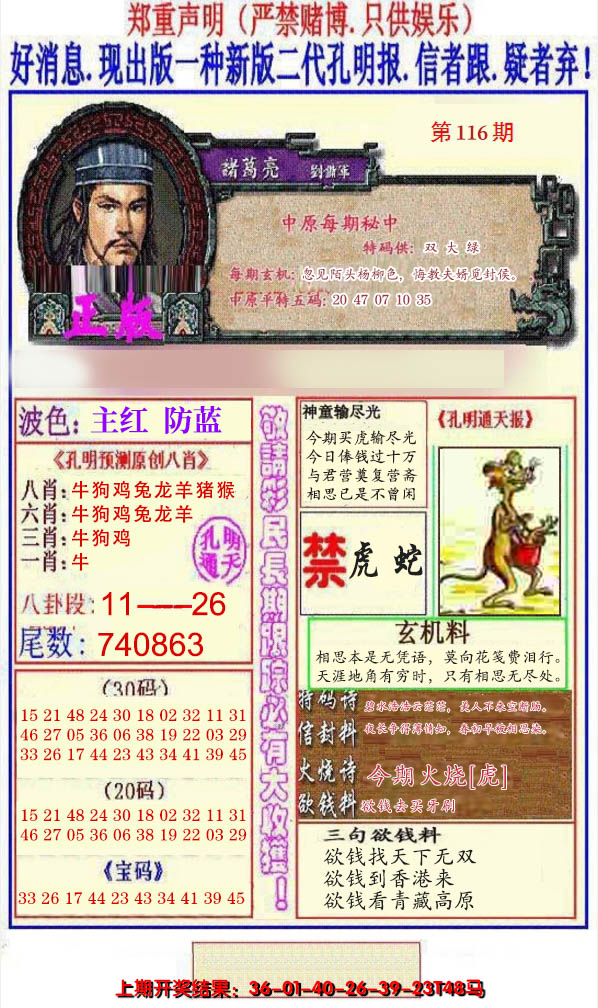 郑重声明（严禁赌博.只供娱乐）
好消息.现出版一种新版二代孔明报.信者跟.疑者弃！
第116期
諸葛亮
中原每期秘中
特码供：双 大 绿
每期玄机：忽见陌头杨柳色，悔教夫婿觅封侯。
中原平特五码：20 47 07 10 35
正版
波色：主红 防蓝
《孔明预测原创八肖》
八肖：牛狗鸡兔龙羊猪猴
六肖：牛狗鸡兔龙羊
三肖：牛狗鸡
一肖：牛
孔明通天
八卦段：11——26
尾数：740863
（30码）
15 21 48 24 30 18 02 32 11 31
46 27 05 36 06 38 19 22 03 29
33 26 17 44 23 43 34 41 39 45
（20码）
15 21 48 24 30 18 02 32 11 31
46 27 05 36 06 38 19 22 03 29
《宝码》
33 26 17 44 23 43 34 41 39 45
敬請彩民長期跟踪必有大收獲！
神童输尽光
今期买虎输尽光
今日俸钱过十万
与君营奠复营斋
相思已是不曾闲
《孔明通天报》
禁虎蛇
玄机料
相思本是无凭语，莫向花笺费泪行。
天涯地角有穷时，只有相思无尽处。
特码诗 碧水浩浩云茫茫，美人不来空断肠。
信封料 夜长争得薄情知，春初早被相思染。
火烧诗 今期火烧[虎]
欲钱料 欲钱去买牙刷
三句欲钱料
欲钱找天下无双
欲钱到香港来
欲钱看青藏高原
上期开奖结果：36-01-40-26-39-23T48马